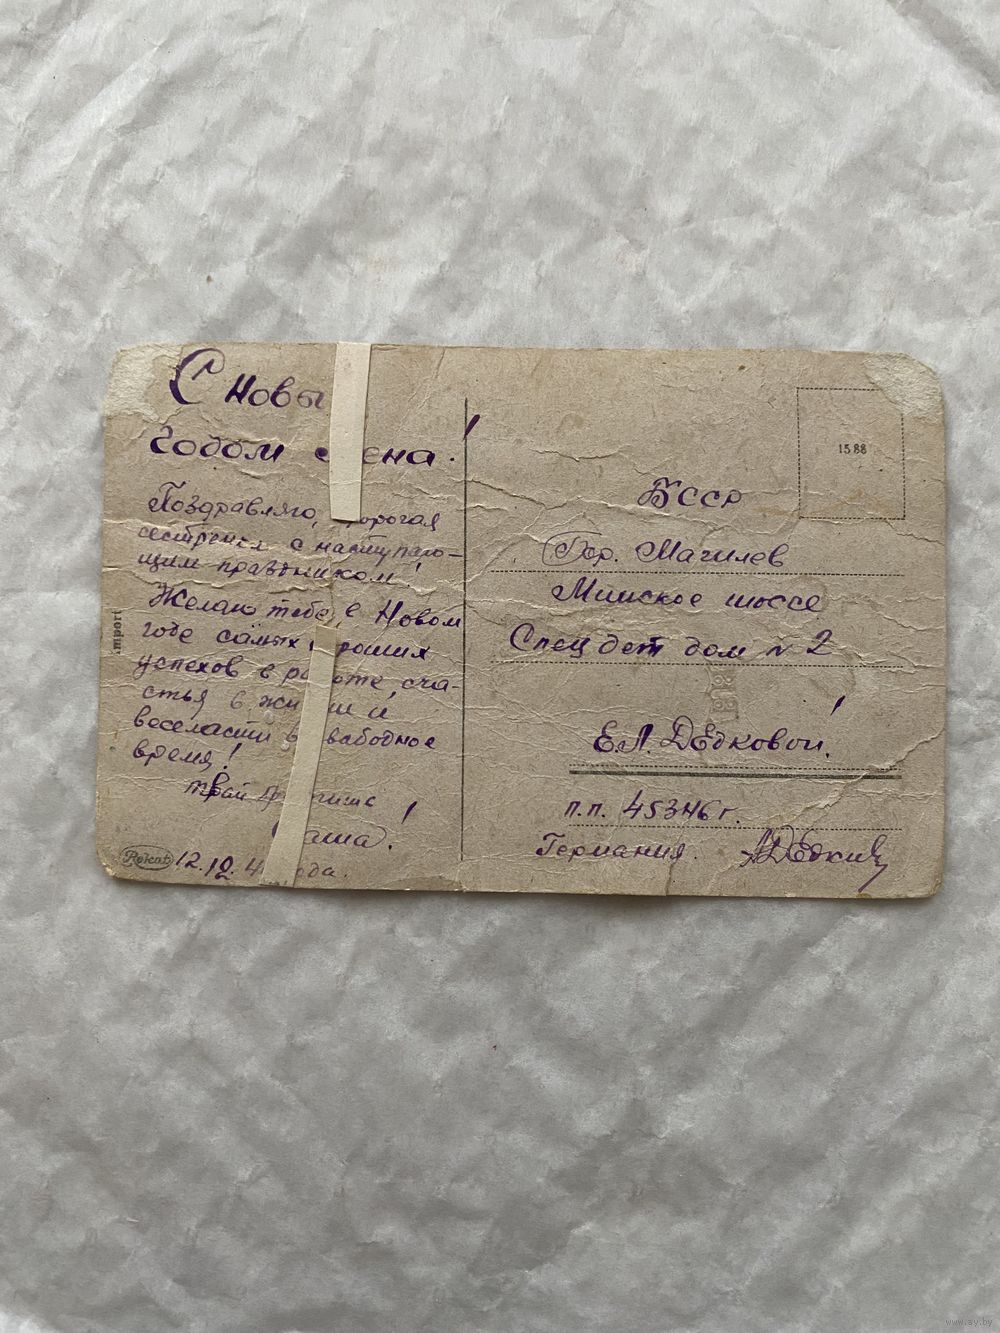 С новы
годом ена!
Поздравляю, орогая
сестренка с наступаю-
щим праздником!
Желаю тебе в Новом
годе самых роших
успехов в работе, сча-
стья в жи и и
веселасти в вабодное
время!
твай
аша!
12.10. 4 ода.
Rokat
import
1588
БССР
Гор. Магилев
Минское шоссе
Спец дет дом № 2
Е.Л. Дедковой!
п.п. 45346 г.
Германия. АДедкив
www.ay.by